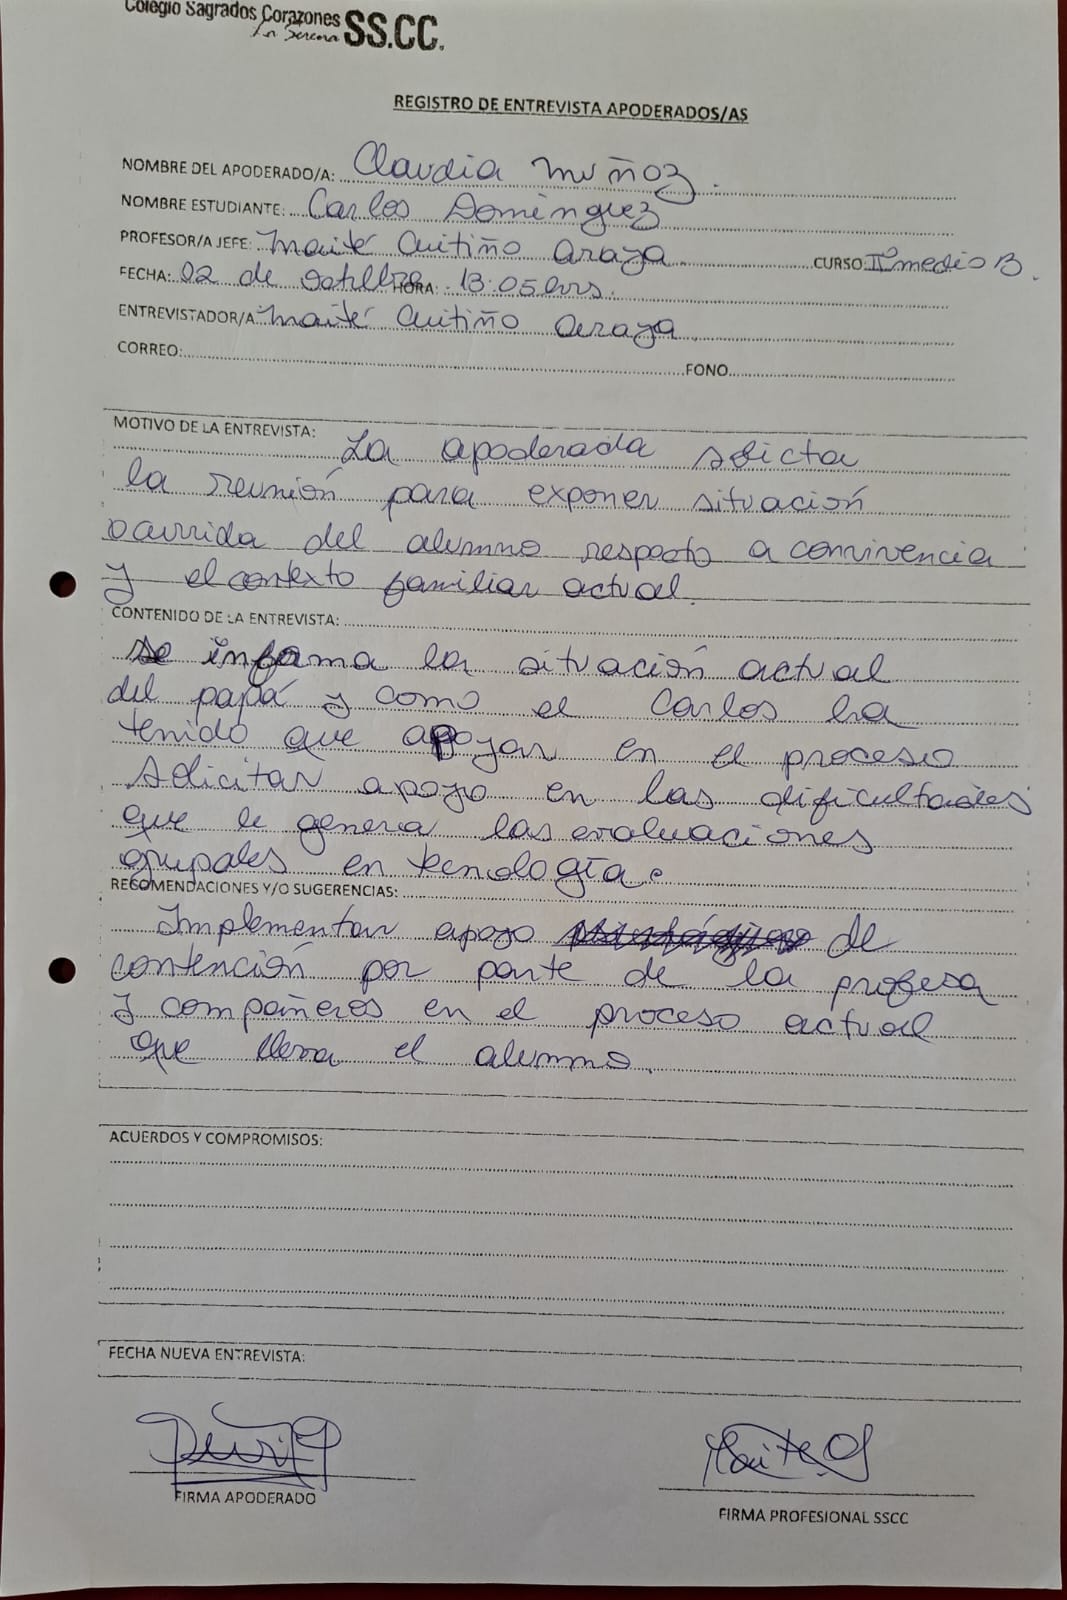 Colegio Sagrados Corazones
La Serena SS.CC.
REGISTRO DE ENTREVISTA APODERADOS/AS
NOMBRE DEL APODERADO/A: Claudia Muñoz.
NOMBRE ESTUDIANTE: Carlos Dominguez
PROFESOR/A JEFE: Maité Cuitiño Araya. CURSO: II°medio B.
FECHA: 02 de octubre HORA: 13:05 hrs.
ENTREVISTADOR/A Maité Cuitiño Araya.
CORREO: FONO
MOTIVO DE LA ENTREVISTA: La apoderada solicta
la reunión para exponer situación
ocurrida del alumno respecto a convivencia
y el contexto familiar actual.
CONTENIDO DE LA ENTREVISTA:
se informa la situación actual
del papá y como el Carlos ha
tenido que apoyar en el proceso
solicitar apoyo en las dificultades
que le genera las evaluaciones
grupales en tecnología.
RECOMENDACIONES Y/O SUGERENCIAS:
Implementar apoyo de
contención por parte de la profesa
y compañeros en el proceso actual
que lleva el alumno.
ACUERDOS Y COMPROMISOS:
FECHA NUEVA ENTREVISTA:
FIRMA APODERADO
Maite
FIRMA PROFESIONAL SSCC